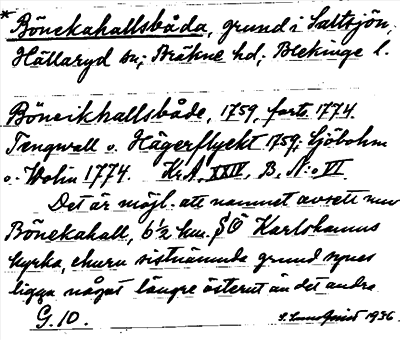 * Bönekahallsbåda, grund i Saltsjön,
Hällaryd sn; Bräkne hd; Blekinge l.
Böneikhallsbåde, 1759, forts. 1774.
Tengwall o. Hägerflyckt 1759; Sjöbohm
o. Wolin 1774. Kr.A. XXIV, B, N:o VI
Det är möjl. att namnet avsett nuv
Bönekahall, 6½ hm. SÖ Karlshamns
kyrka, ehuru sistnämnda grund synes
ligga något längre österut än det andra
G. 10. S. Lundqvist 1936.